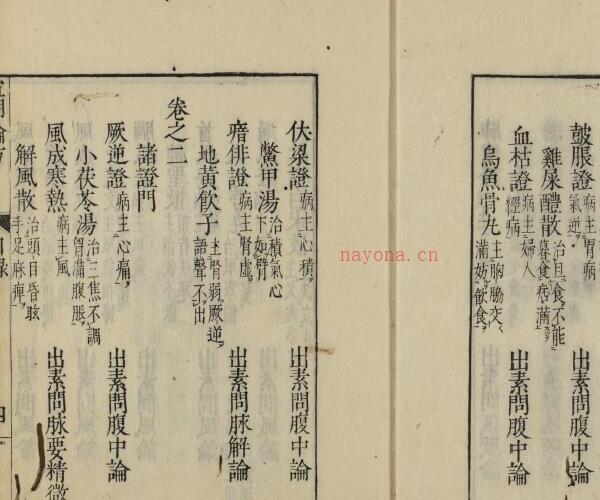 皷脹證 病主胃病氣逆 出素問腹中論
雞屎醴散 治旦食不能暮食痞滿
血枯證 病主婦人經病 出素問腹中論
烏魚骨丸 主胸脇交滿妨飲食
伏梁證 病主心積 出素問腹中論
鱉甲湯 治積氣心下如臂
瘖俳證 病主腎虛 出素問脉解論
地黃飲子 主腎弱厥逆語聲不出
卷之二
諸證門
厥逆證 病主心痛 出素問腹中論
小茯苓湯 治三焦不調胃滿腹脹
風成寒熱 病主風 出素問脉要精微
解風散 治頭目昏眩手足麻痺
nayona.cn